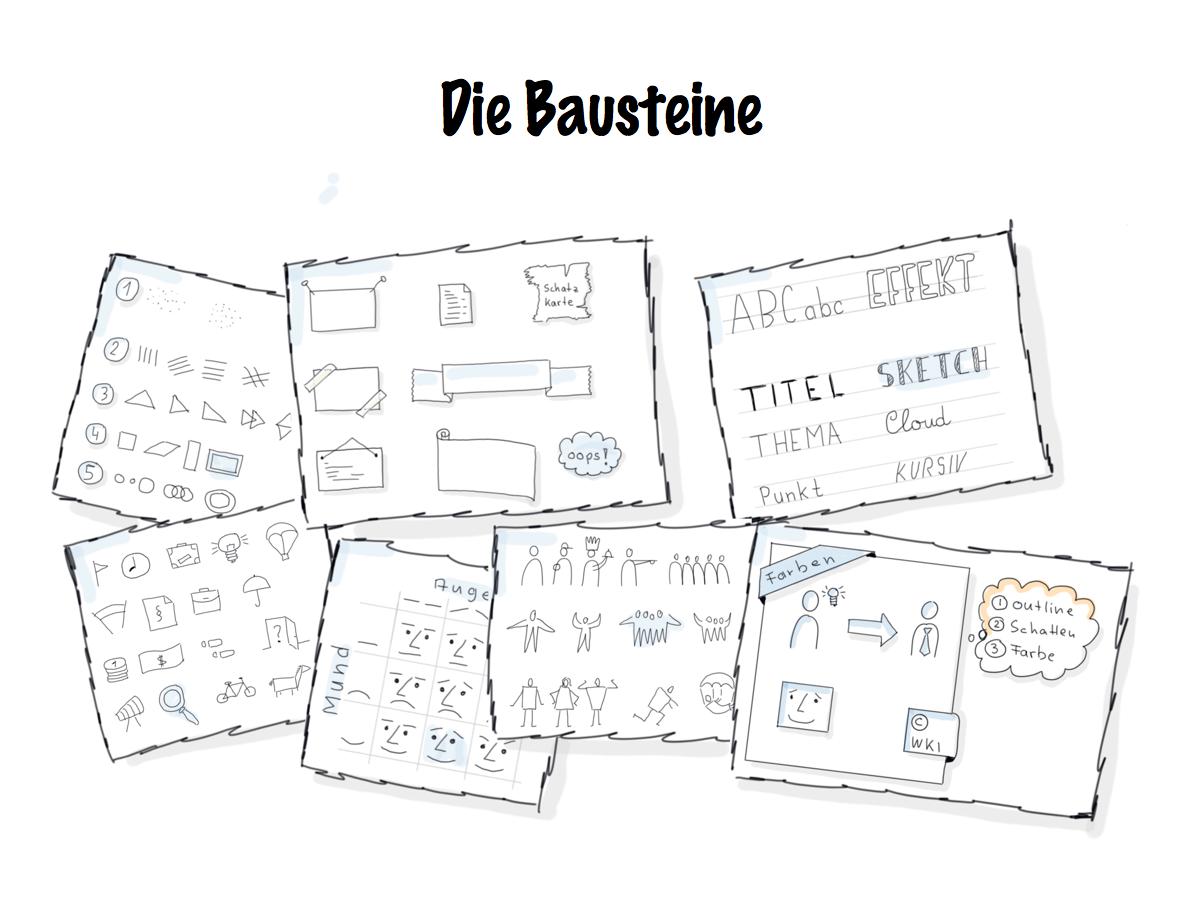 Die Bausteine
1
2
3
4
5
Schatz
karte
oops!
ABC abc EFFEKT
TITEL SKETCH
THEMA Cloud
Punkt KURSIV
§
1
$
?
Auge
Mund
Farben
© WKI
1 Outline
2 Schatten
3 Farbe